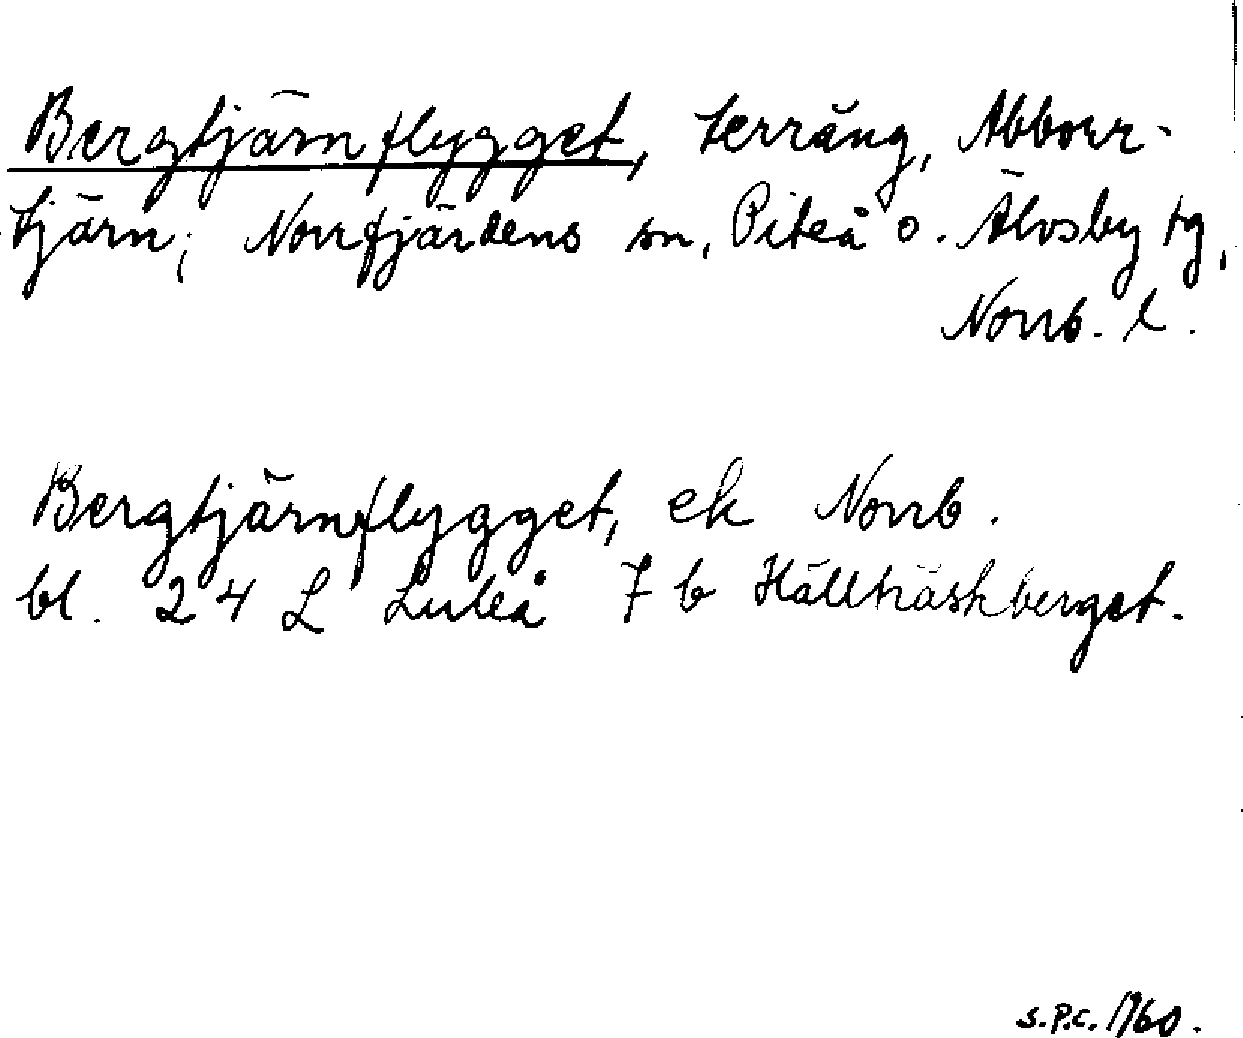 Bergtjärnflygget, terräng, Abborr-
tjärn, Norrfjärdens sn, Piteå o. Älvsby tg,
Norrb. l.
Bergtjärnflygget, ek Norrb.
bl. 24 L Luleå 7 b Hällträskberget.
S.P.C. 1960.